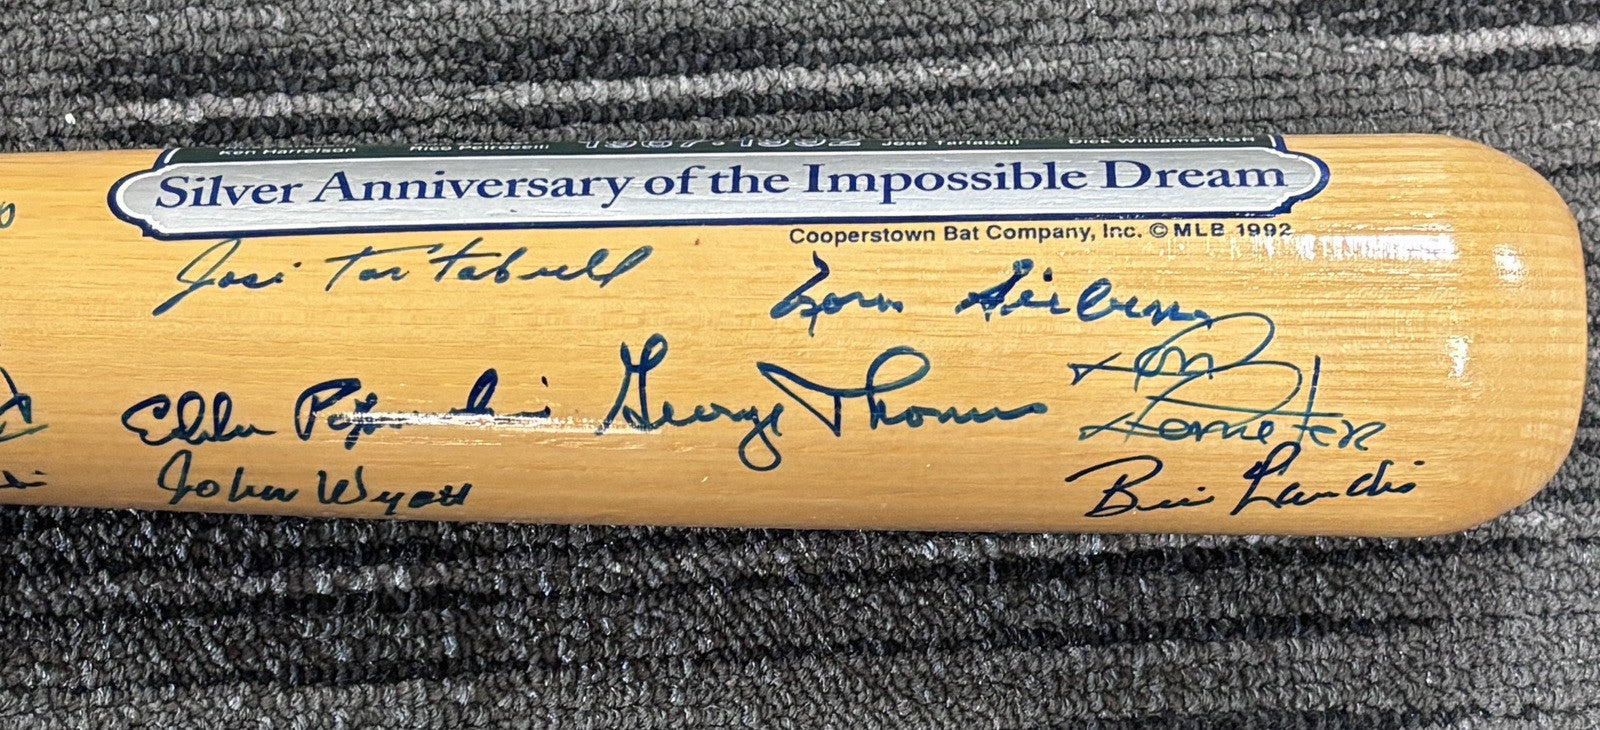 Rico Petrocelli 1967-1992 Jose Tartabull Dick Williams-MGR
Silver Anniversary of the Impossible Dream
Cooperstown Bat Company, Inc. © MLB 1992
Jose Tartabull
Norm Siebern
Eddie Popowski
George Thomas
Don
Demeter
John Wyatt
Bill Landis